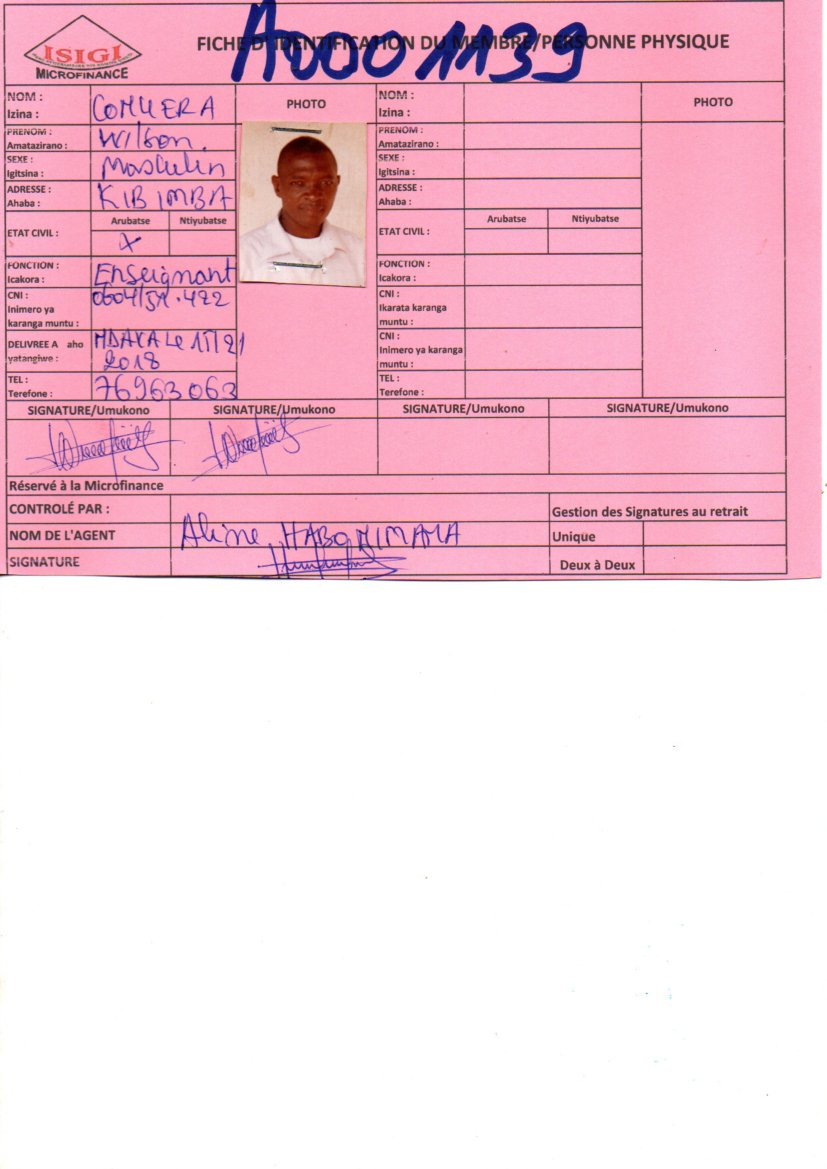 A00001139
ISIGI
MICROFINANCE
FICHE D'IDENTIFICATION DU MEMBRE/PERSONNE PHYSIQUE
NOM :
Izina :
PHOTO
NOM :
Izina :
PHOTO
PRENOM :
Amatazirano :
Wilson.
PRENOM :
Amatazirano :
SEXE :
Igitsina :
Masculin
SEXE :
Igitsina :
ADRESSE :
Ahaba :
KIBIMBA
ADRESSE :
Ahaba :
ETAT CIVIL :
Arubatse
Ntiyubatse
X
ETAT CIVIL :
Arubatse
Ntiyubatse
FONCTION :
Icakora :
Enseignant
FONCTION :
Icakora :
CNI :
Inimero ya
karanga muntu :
CNI :
Ikarata karanga
muntu :
DELIVREE A aho
yatangiwe :
2018
CNI :
Inimero ya karanga
muntu :
TEL :
Terefone :
76963063
TEL :
Terefone :
SIGNATURE/Umukono
SIGNATURE/Umukono
SIGNATURE/Umukono
SIGNATURE/Umukono
Réservé à la Microfinance
CONTROLÉ PAR :
Gestion des Signatures au retrait
NOM DE L'AGENT
Aline HABONIMANA
Unique
SIGNATURE
Deux à Deux